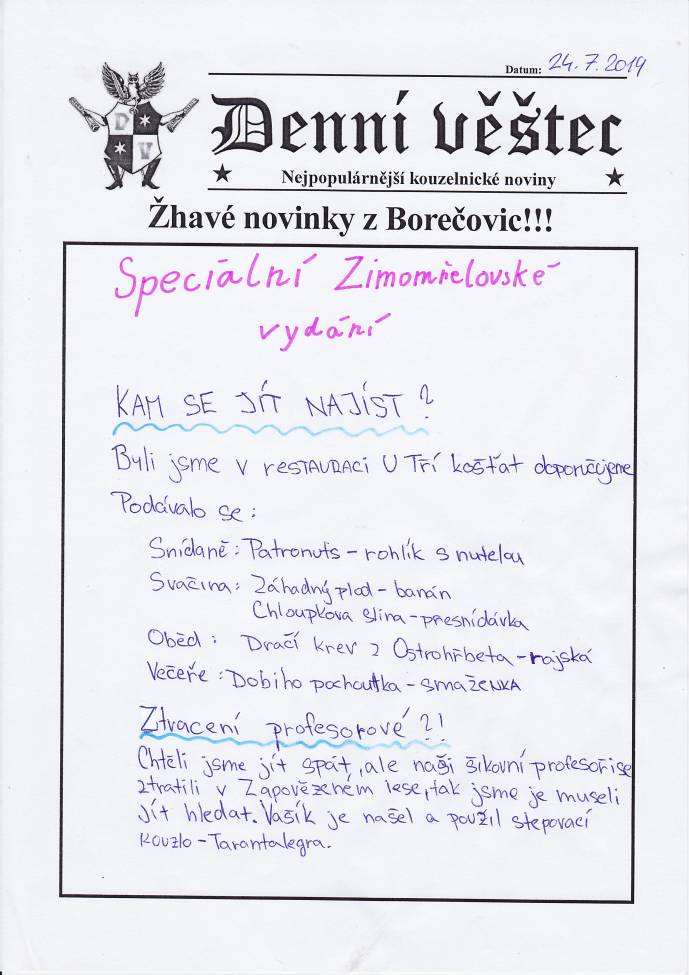 Datum: 24.7.2019
D V
D V
Denní věštec
Nejpopulárnější kouzelnické noviny
Žhavé novinky z Borečovic!!!
Speciální Zimomřelovské
vydání
KAM SE JÍT NAJÍST?
Byli jsme v restauraci U Tří košťat doporučujeme
Podávalo se:
Snídaně: Patronuts - rohlík s nutelou
Svačina: Záhadný plod - banán
Chloupkova slina - přesnídávka
Oběd: Dračí krev z Ostrohřbeta - rajská
Večeře: Dobiho pochoutka - smaženka
Ztracení profesorové?!
Chtěli jsme jít spát, ale naši šikovní profesoři se
ztratili v Zapovězeném lese, tak jsme je museli
jít hledat. Vašík je našel a použil stepovací
kouzlo - Tarantalegra.